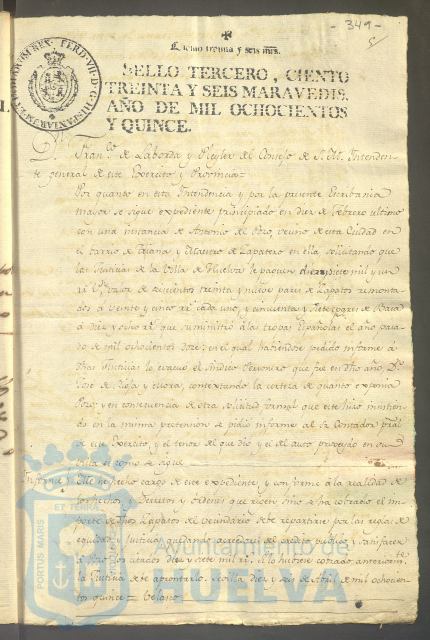 - 349 -
SELLO TERCERO, CIENTO
TREINTA Y SEIS MARAVEDIS,
AÑO DE MIL OCHOCIENTOS
Y QUINCE.
Dn. Franco. de Laborda y Pleyler del Consejo de S. M. Intenden-
te general de este Exercito y Provincia=
Por quanto en esta Intendencia y por la presente Escribania
mayor se sigue expediente principiado en diez de Febrero ultimo
con una instancia de Antonio de Pozo, vecino de esta Ciudad en
el barrio de Triana y Maestro de Zapatero en ella solicitando que
las Justicias de la Villa de Huelva le paguen diez y siete mil y un
rs. vn. valor de doscientos treinta y nueve pares de Zapatos remonta-
dos a veinte y cinco rs. cada uno, y cincuenta y siete pares de Baca
á diez y ocho rs. que suministró a las tropas Españolas el año pasa-
do de mil ochocientos doze; en el qual habiendose pedido informe á
dhas Justicias lo evacuó el Sindico Personero que fue en dho año, Dn.
Jose de contextando la certeza de quanto exponia
Pozo; y en consecuencia de otra solicitud formal que este hizo insistien-
do en la misma pretension se pidio informe al Sr. Contador pral
de este Exercito, y el tenor del que dio y el del auto proveydo en su
vista es como se sigue
Informe
Este he hecho cargo de este expediente, y conforme á la realidad de
los hechos, Decretos y ordenes que rigen, sino se ha cobrado el im-
porte de dhos Zapatos del vecindario debe repartirse por las reglas de
equidad y Justicia quedando acreedor del credito publico y satisfacer
á Pozo los citados diez y siete mil rs. si lo hubiere cobrado anteriormte.
la Justicia debe aprontarlo. Sevilla diez y seis de Abril de mil ochocien-
tos quince = Velasco
PORTUS MARIS
ET TERRÆ
Ayuntamiento de
HUELVA